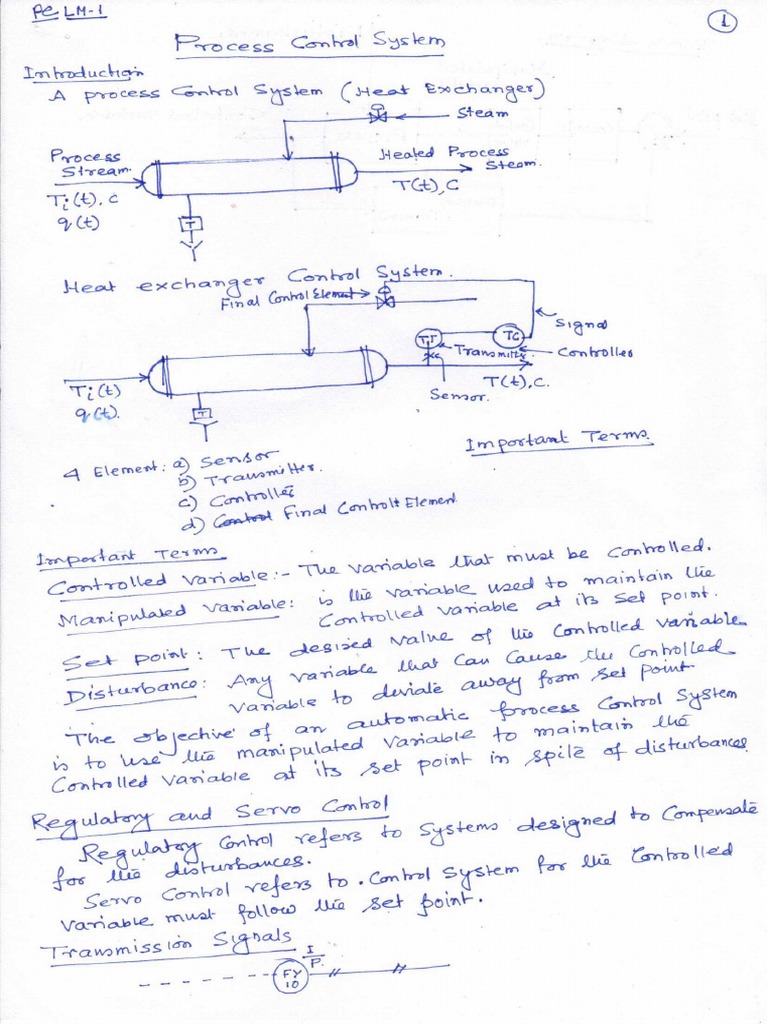 PC LM-1
1
Process Control System
Introduction
A process Control System (Heat Exchanger)
Steam
Process
Stream
Heated Process
Steam.
Ti(t), C
T(t), C
q(t)
T
Heat exchanger Control System.
Final Control Element
Signal
TT
TC
Transmitter
Controller
Ti(t)
T(t), C.
q(t).
Sensor.
T
Important Terms.
4 Element: a) Sensor
b) Transmitter.
c) Controller
d) Control Final Control Element
Important Terms
Controlled Variable:- The variable that must be controlled.
Manipulated Variable: is the variable used to maintain the
Controlled variable at its set point.
Set point: The desired value of the Controlled variable
Disturbance: Any variable that can cause the Controlled
variable to deviate away from set point
The objective of an automatic process Control System
is to use the manipulated variable to maintain the
Controlled variable at its set point in spite of disturbances
Regulatory and Servo Control
Regulatory Control refers to systems designed to compensate
for the disturbances.
Servo Control refers to. Control System for the Controlled
variable must follow the set point.
Transmission Signals
I
P.
FY
10